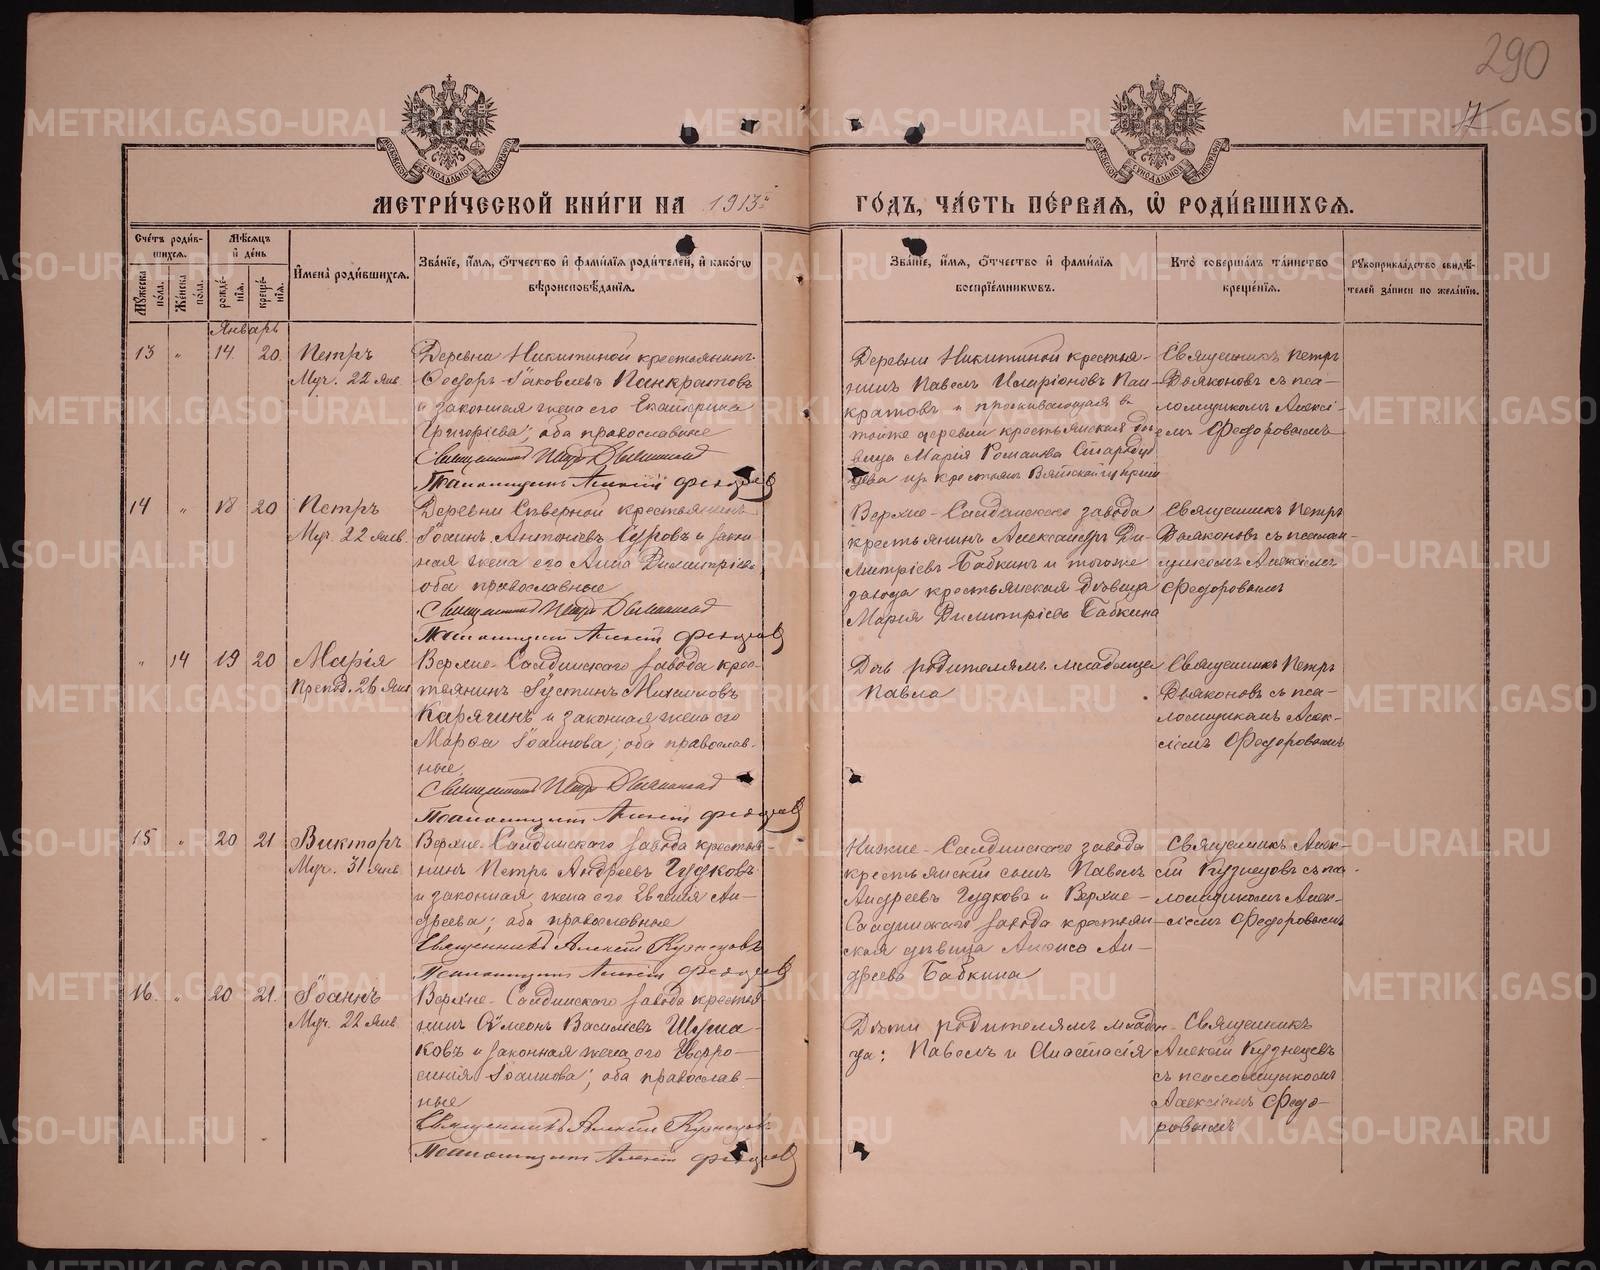 290
МЕТРИ́ЧЕСКОЙ КНИ́ГИ НА 1913й ГО́ДЪ, ЧА́СТЬ ПЕ́РВАЯ, Ѡ РОДИ́ВШИХСЯ.
Сче́тъ роди́в-
шихся.
Му́жеска по́ла.
Же́нска по́ла.
Мѣ́сяцъ
и де́нь
рожде́нія.
креще́нія.
Имена̀ роди́вшихся.
Зва́нїе, и́мя, ѻ҆́тчество и фами́лїя роди́телей, и како́гѡ
вѣроисповѣ́данїя.
Зва́нїе, и́мя, ѻ҆́тчество и фами́лїя
воспрїе́мникѡвъ.
Кто̀ соверша́лъ та́инство
креще́нїя.
Рꙋкоприкла́дство свидѣ́-
телей за́писи по жела́нїю.
Январь
13 " 14 20
Петръ
Муч. 22 янв.
Деревни Никитиной крестьянинъ
Ѳеодоръ Іаковлевъ Панкратовъ
и законная жена его Екатерина
Григоріева; оба православные
Священникъ Петръ Дьяконовъ
Псаломщикъ Алексій Федоровъ
Деревни Никитиной крестья-
нинъ Павелъ Иларіоновъ Пан-
кратовъ и проживающая в
тойже деревни крестьянская дѣ-
вица Марія Романова Стародуб-
цева из крестьян Вятской губерніи
Священникъ Петръ
Дьяконовъ съ пса-
ломщикомъ Алексі-
емъ Федоровымъ
14 " 18 20
Петръ
Муч. 22 янв.
Деревни Сѣверной крестьянинъ
Іоаннъ Антоніевъ Суровъ и закон-
ная жена его Анна Димитріева
оба православные
Священникъ Петръ Дьяконовъ
Псаломщикъ Алексій Федоровъ
Верхне-Салдинскаго завода
крестьянинъ Александръ Ди-
митріевъ Бабкинъ и тогоже
завода крестьянская дѣвица
Марія Димитріева Бабкина
Священникъ Петръ
Дьяконовъ съ псалом-
щикомъ Алексіемъ
Федоровымъ
" 14 19 20
Марія
Препод. 26 янв
Верхне-Салдинскаго завода крес-
тьянинъ Іустинъ Михайловъ
Карягинъ и законная жена его
Марѳа Іоаннова; оба православ-
ные.
Священникъ Петръ Дьяконовъ
Псаломщикъ Алексій Федоровъ
Дочь родителямъ младенца
Павла
Священникъ Петръ
Дьяконовъ съ пса-
ломщикомъ Алек-
сіемъ Федоровымъ
15 " 20 21
Викторъ
Муч. 31 янв.
Верхне-Салдинскаго завода крестья-
нинъ Петръ Андреевъ Гудковъ
и законная жена его Евгенія Ан-
дреева; оба православные
Священникъ Алексій Кузнецовъ
Псаломщикъ Алексій Федоровъ
Нижне-Салдинскаго завода
крестьянскій сынъ Павелъ
Андреевъ Гудковъ и Верхне-
Салдинскаго завода крестьян-
ская дѣвица Анфиса Ан-
дреева Бабкина
Священникъ Алек-
сій Кузнецовъ съ пса-
ломщикомъ Алек-
сіемъ Федоровымъ
16. " 20 21.
Іоаннъ
Муч. 22 янв.
Верхне-Салдинскаго завода крестья
нинъ Сѵмеонъ Василіевъ Шума-
ковъ и законная жена его Евфро-
синія Іоаннова; оба православ-
ные
Священникъ Алексій Кузнецовъ
Псаломщикъ Алексій Федоровъ
Дѣти родителямъ младен-
ца: Павелъ и Анастасія
Священникъ
Алексій Кузнецовъ
съ псаломщикомъ
Алексіемъ Федо-
ровымъ
METRIKI.GASO-URAL.RU